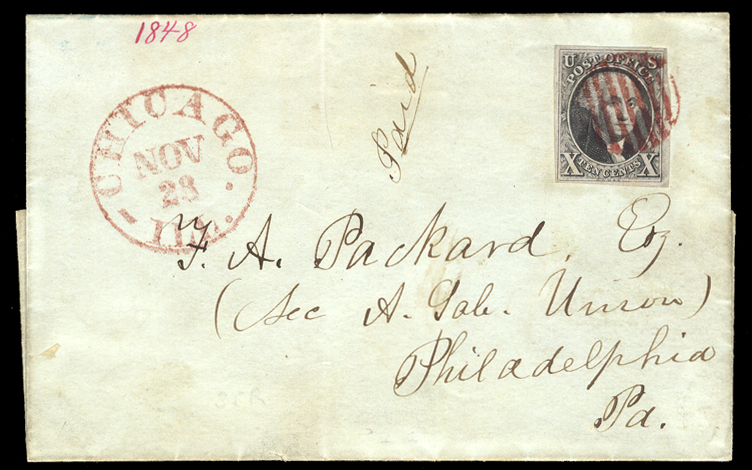 1848
Paid
U S
POST OFFICE
X TEN CENTS X
CHICAGO
NOV
28
ILL.
F. A. Packard, Esq.
(Sec A. Sab. Union)
Philadelphia
Pa.